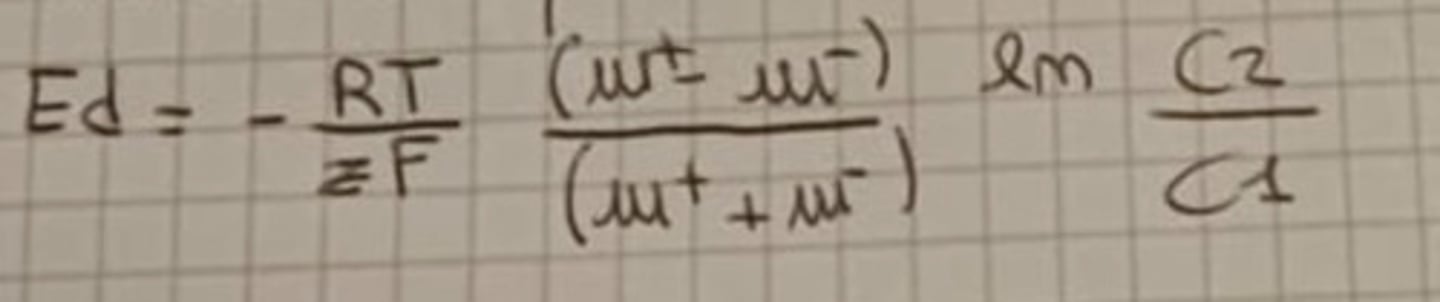 Ed = - RT/zF (u⁺ - u⁻)/(u⁺ + u⁻) ln C2/C1